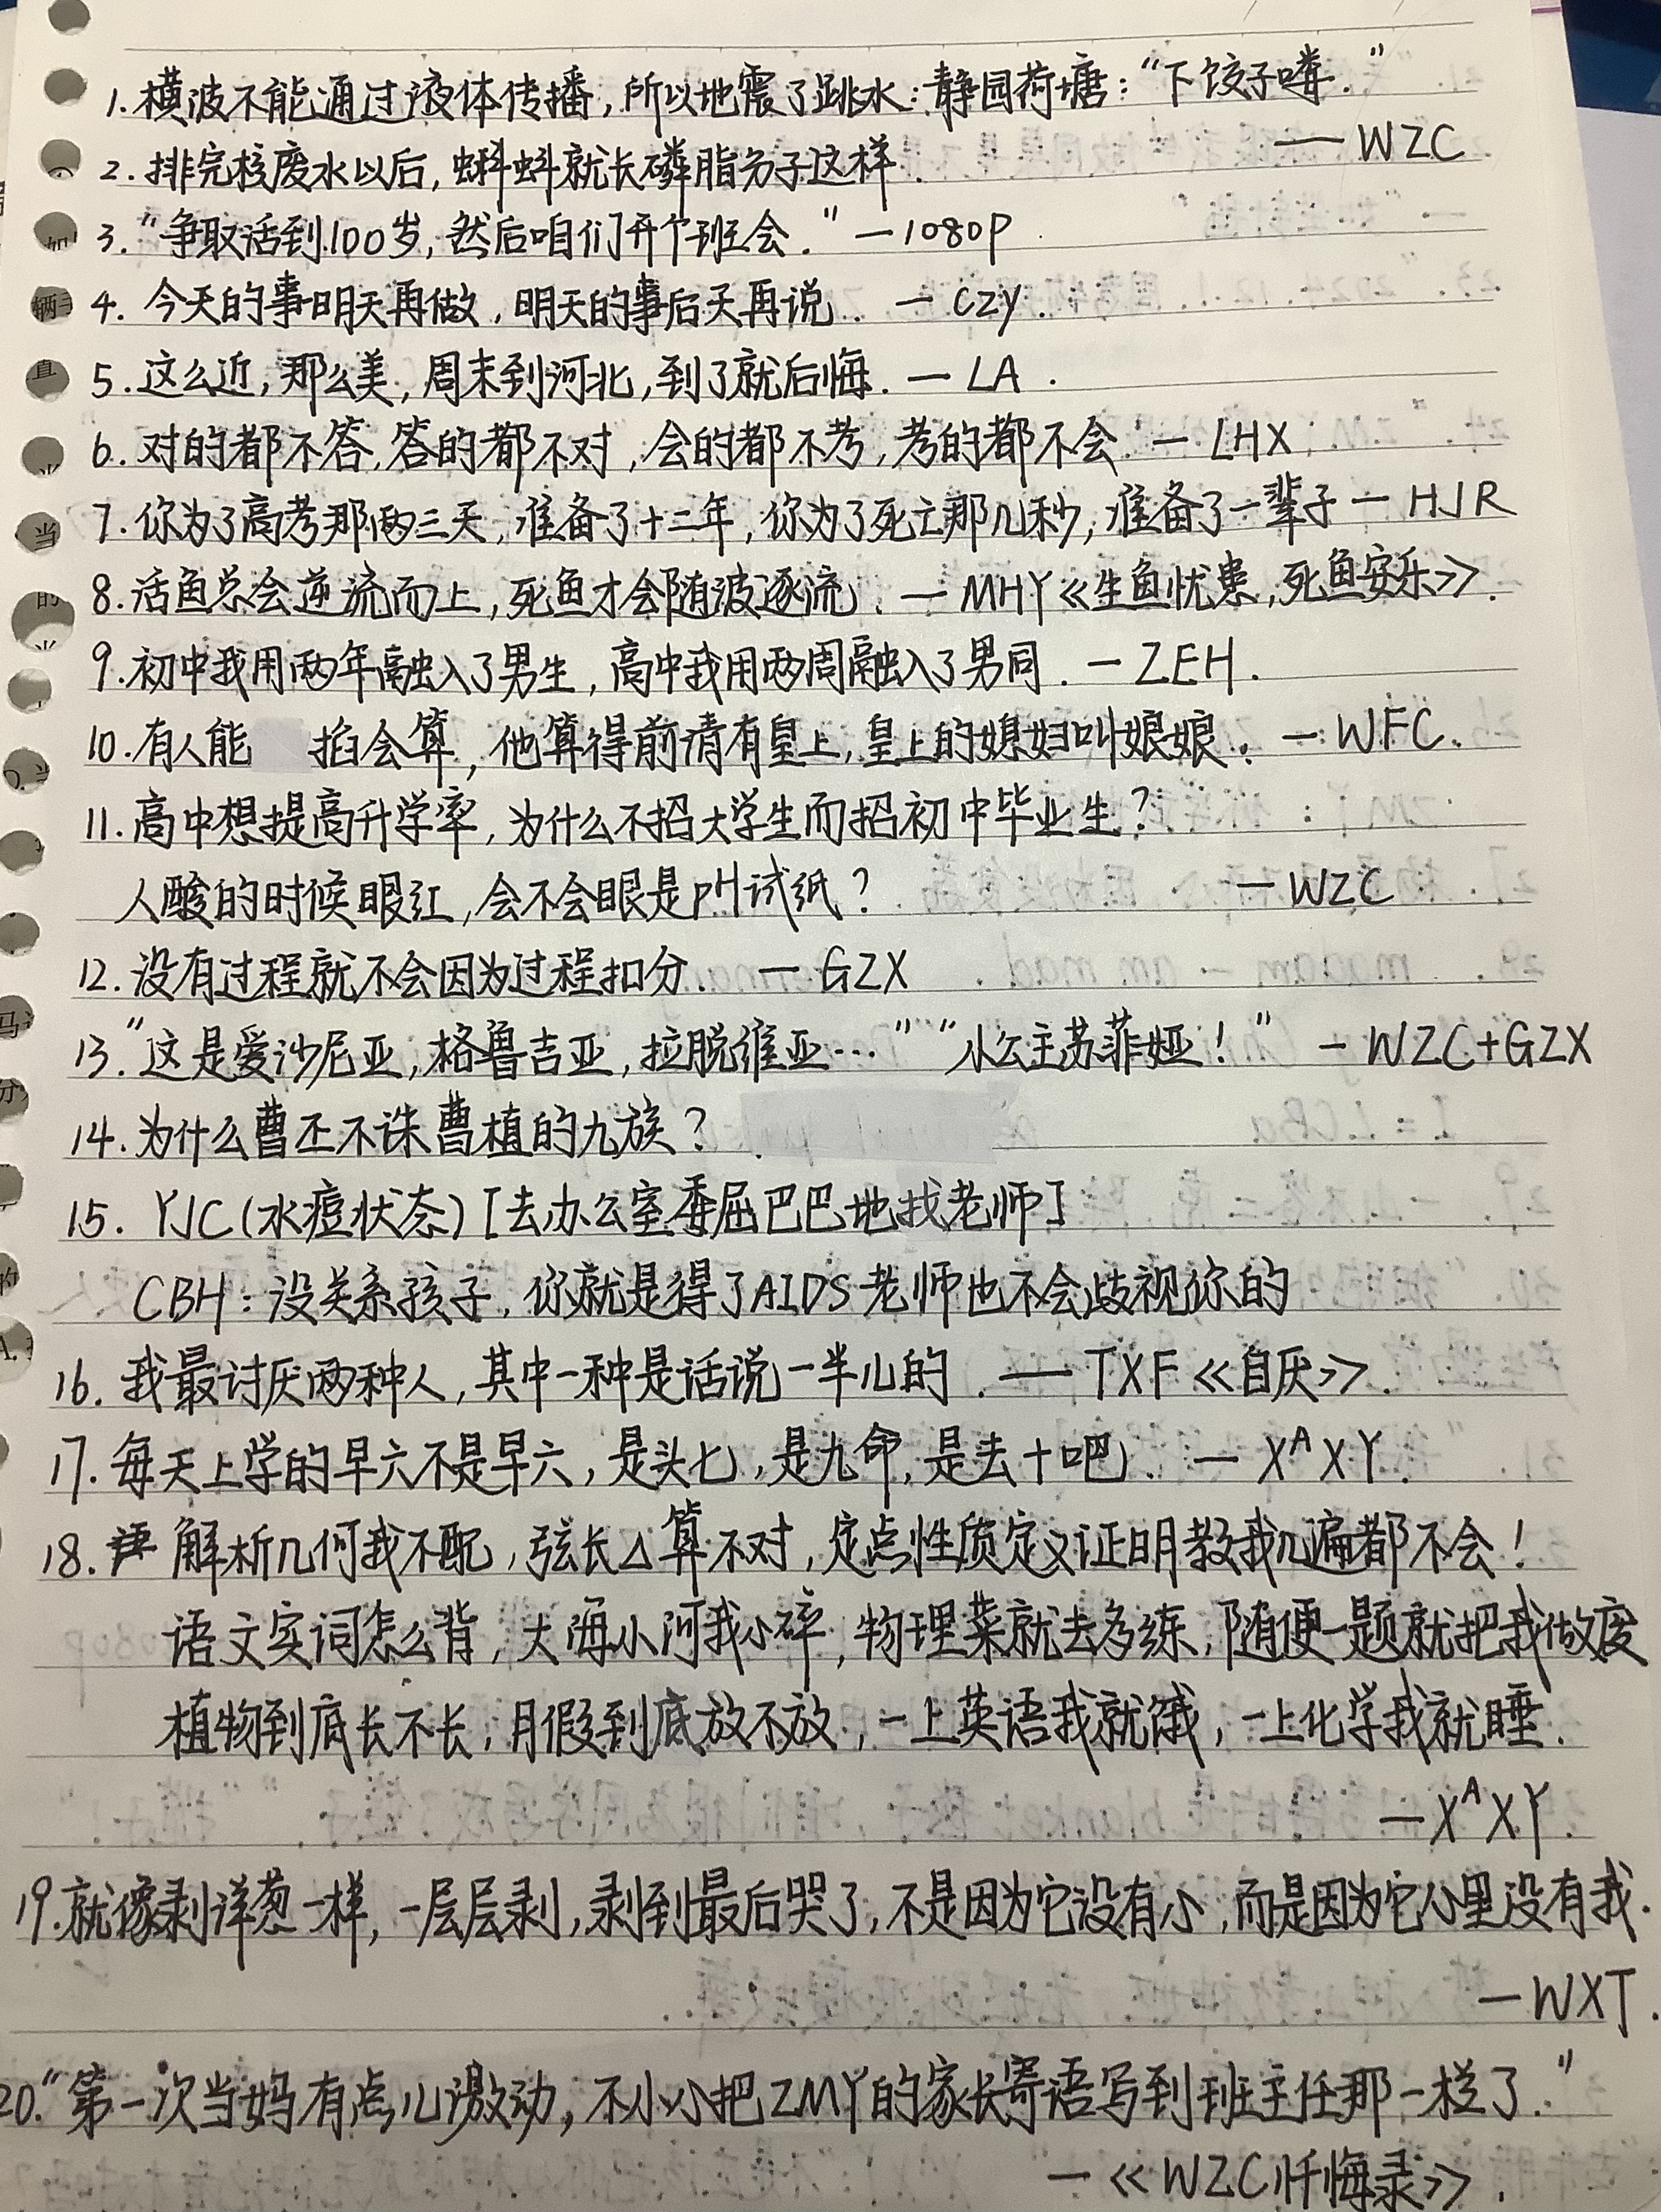 1. 横波不能通过液体传播，所以地震了跳水：静园荷塘：“下饺子喽.”
— WZC
2. 排完核废水以后，蝌蚪就长磷脂分子这样.
3. “争取活到100岁，然后咱们开个班会.” — 1080P
4. 今天的事明天再做，明天的事后天再说. — CZY.
5. 这么近，那么美，周末到河北，到了就后悔. — LA.
6. 对的都不答，答的都不对，会的都不考，考的都不会. — LHX
7. 你为了高考那两三天，准备了十二年，你为了死亡那几秒，准备了一辈子 — HJR
8. 活鱼总会逆流而上，死鱼才会随波逐流. — MHY《生鱼忧患，死鱼安乐》.
9. 初中我用两年融入了男生，高中我用两周融入了男同. — ZEH.
10. 有人能 掐会算，他算得前清有皇上，皇上的媳妇叫娘娘. — WFC.
11. 高中想提高升学率，为什么不招大学生而招初中毕业生？
人酸的时候眼红，会不会眼是pH试纸？ — WZC
12. 没有过程就不会因为过程扣分. — GZX
13. “这是爱沙尼亚，格鲁吉亚，拉脱维亚…” “小公主苏菲娅！” — WZC+GZX
14. 为什么曹丕不诛曹植的九族？
15. YJC(水痘状态) [去办公室委屈巴巴地找老师]
CBH：没关系孩子，你就是得了AIDS老师也不会歧视你的
16. 我最讨厌两种人，其中一种是话说一半儿的. — TXF《自厌》.
17. 每天上学的早六不是早六，是头七，是九命，是去十吧. — XᴬXY.
18. 解析几何我不配，弦长△算不对，定点性质定义证明教我几遍都不会！
语文实词怎么背，大海小河我心碎，物理菜就去多练，随便一题就把我做废
植物到底长不长，月假到底放不放，一上英语我就饿，一上化学我就睡.
— XᴬXY.
19. 就像剥洋葱一样，一层层剥，剥到最后哭了，不是因为它没有心，而是因为它心里没有我.
— WXT.
20. “第一次当妈有点儿激动，不小心把ZMY的家长寄语写到班主任那一栏了.”
— 《WZC忏悔录》.